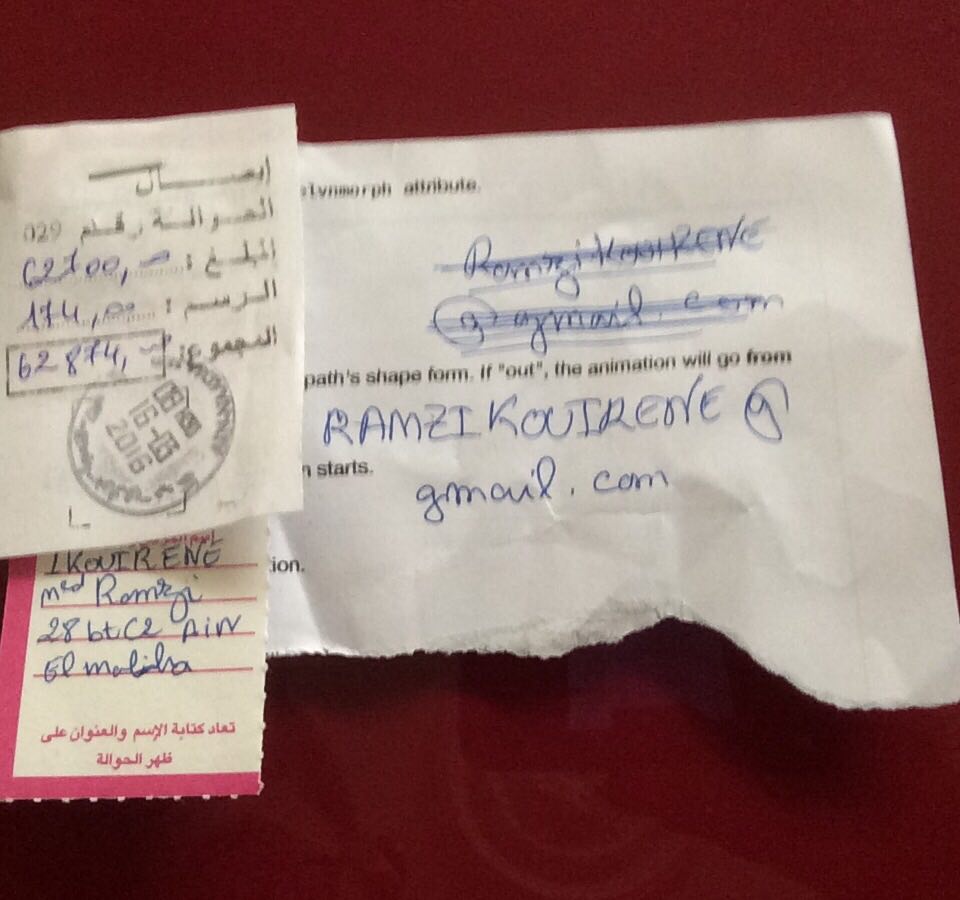 إيصال
الحوالة رقم 029
المبلغ : 62700,00
الرسم : 174,00
المجموع : 62874,00
16-03
2016
KOUIRENE
Med Ramzi
28 bt C2 AiN
El maliha
تعاد كتابة الإسم والعنوان على
ظهر الحوالة
attribute.
Ramzi KOUIRENE
@ gmail.com
path's shape form. If "out", the animation will go from
RAMZI KOUIRENE @
starts.
gmail.com
ion.